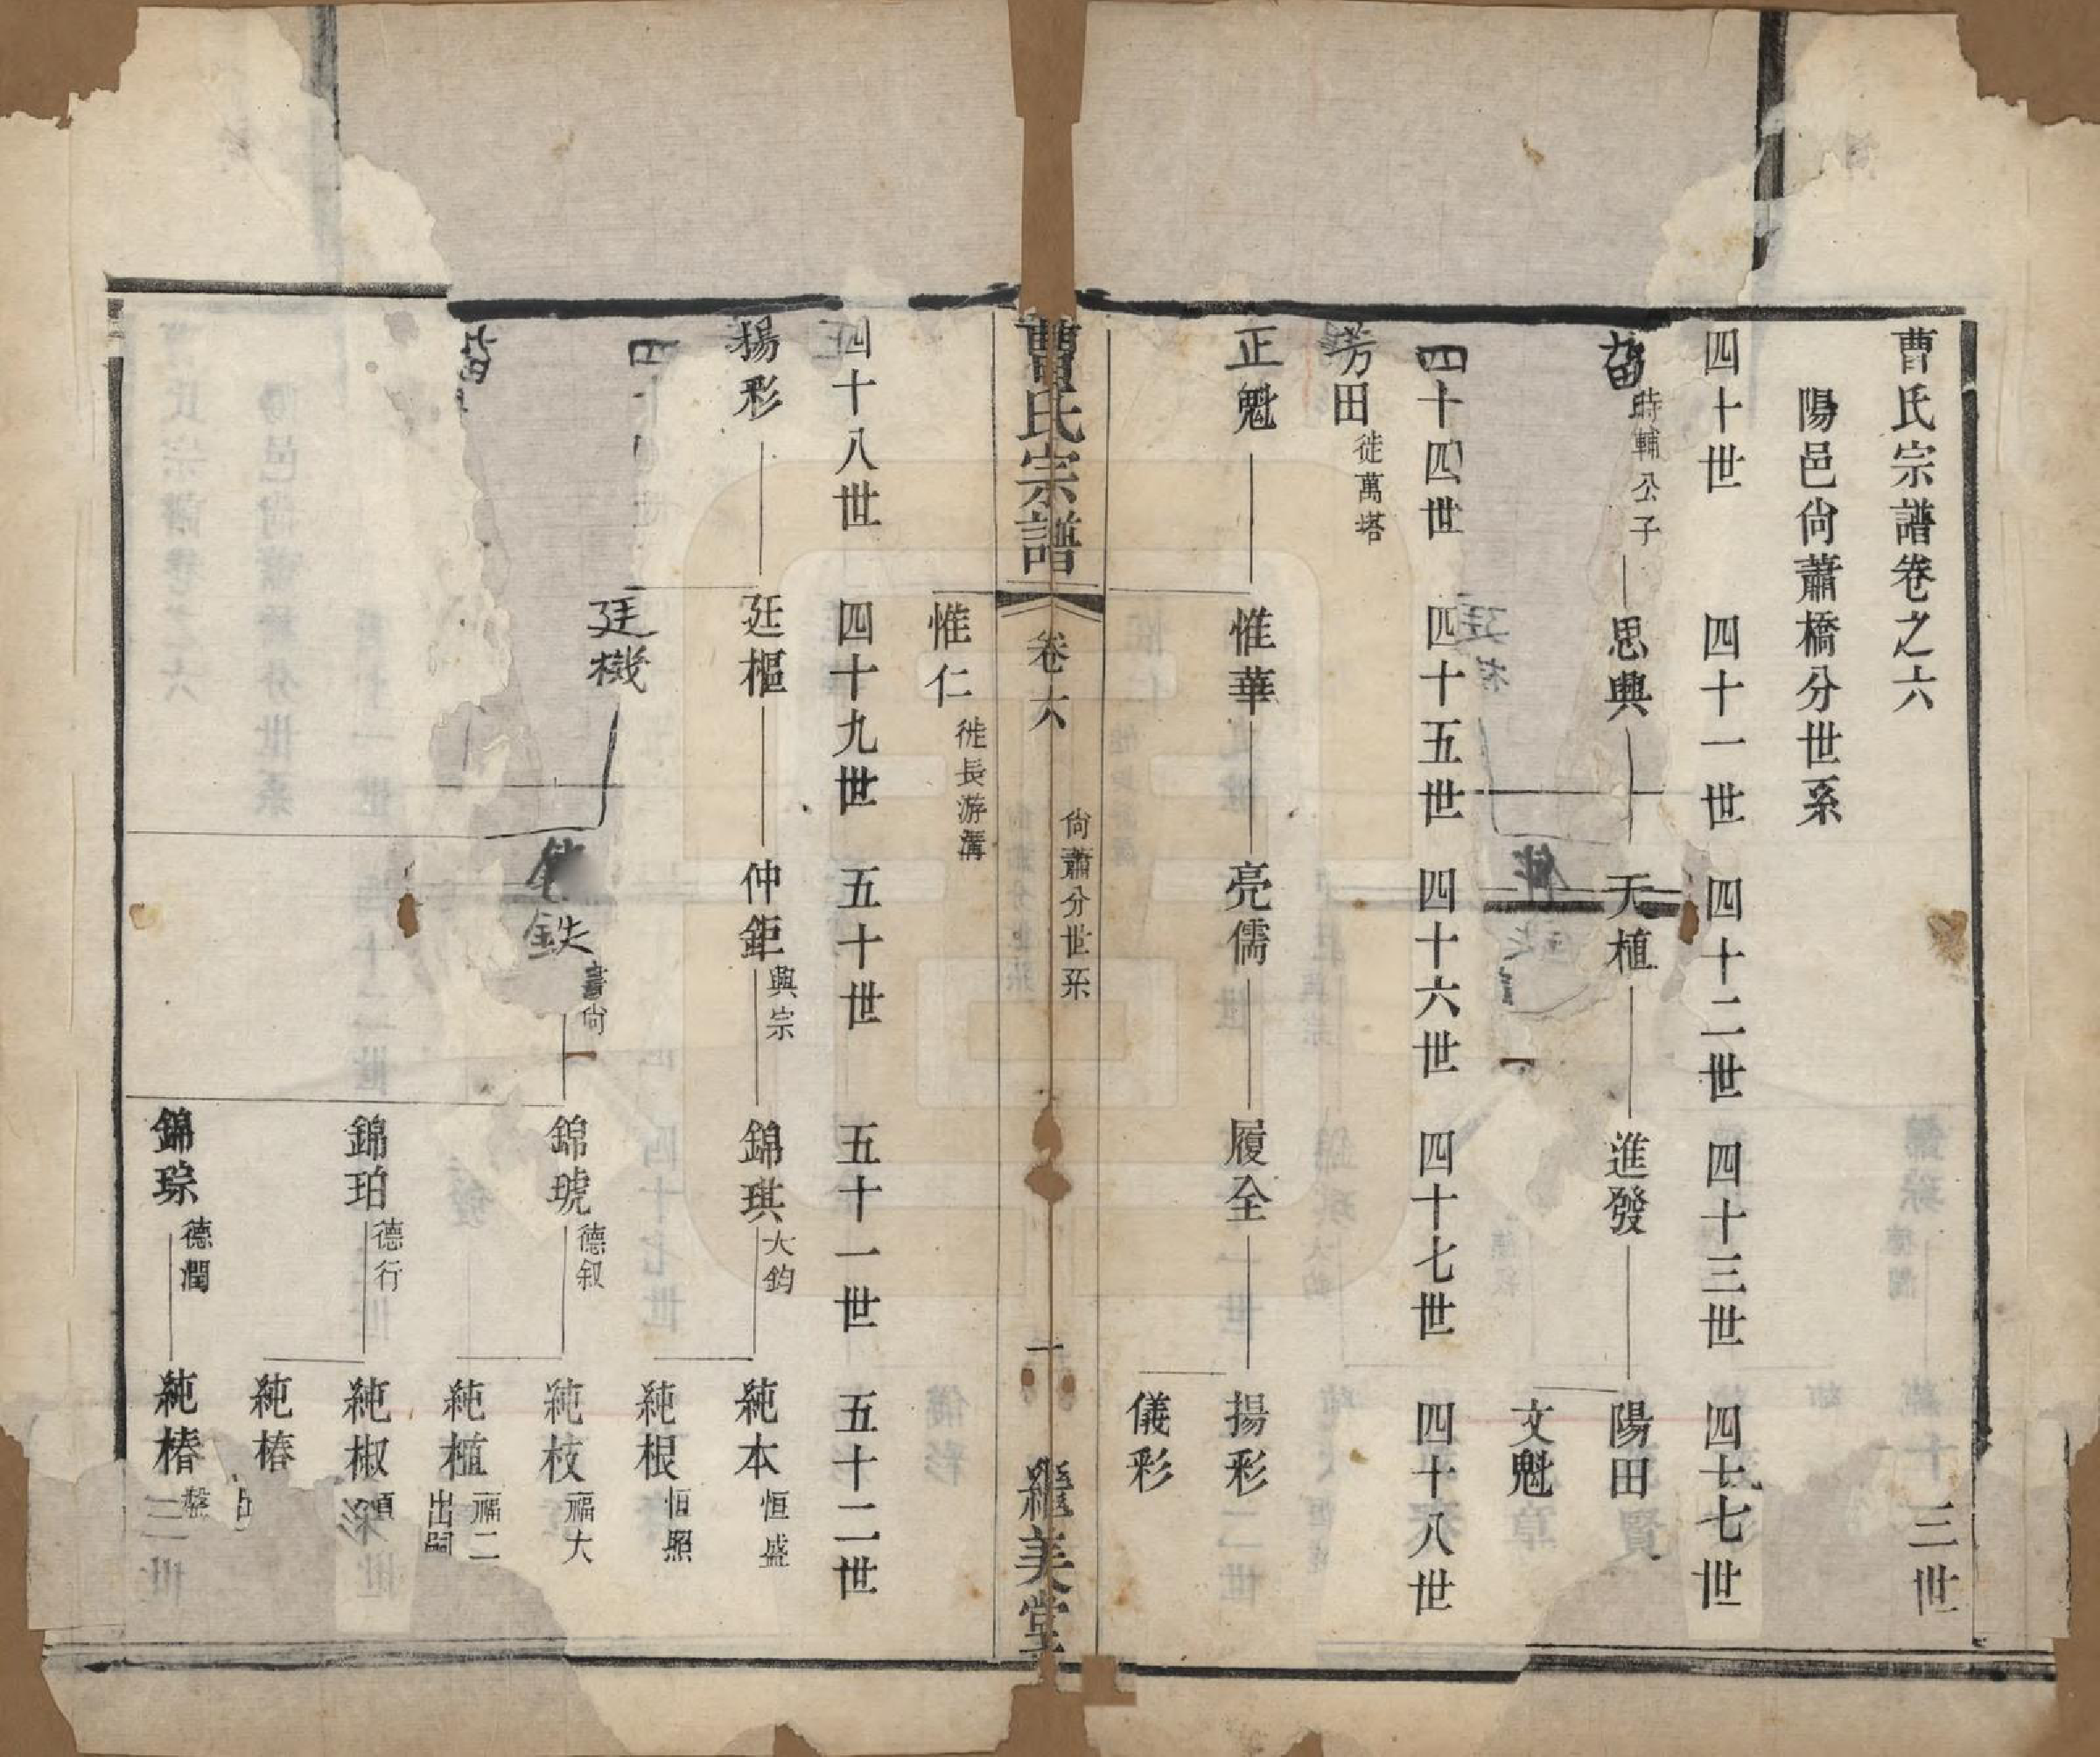 曹氏宗譜卷之六
三世
陽邑尙蕭橋分世系
四十世 四十一世 四十二世 四十三世 四十七世
時輔公子 思興 天植 進發 陽田
文魁
四十四世 四十五世 四十六世 四十七世 四十八世
芳田 徙萬塔
正魁 惟華 亮儒 履全 揚彩
儀彩
曹氏宗譜 卷六 尙蕭分世系 一 繼美堂
惟仁 徙長游溝
四十八世 四十九世 五十世 五十一世 五十二世
揚彩 廷樞 仲鉅 興宗 錦琪 大鈞 純本 恒盛
純根 恒照
廷機 鉄 書尙 錦琥 德叙 純枝 福大
純植 福二 出嗣
錦珀 德行 純椒
純椿
錦琮 德潤 純椿